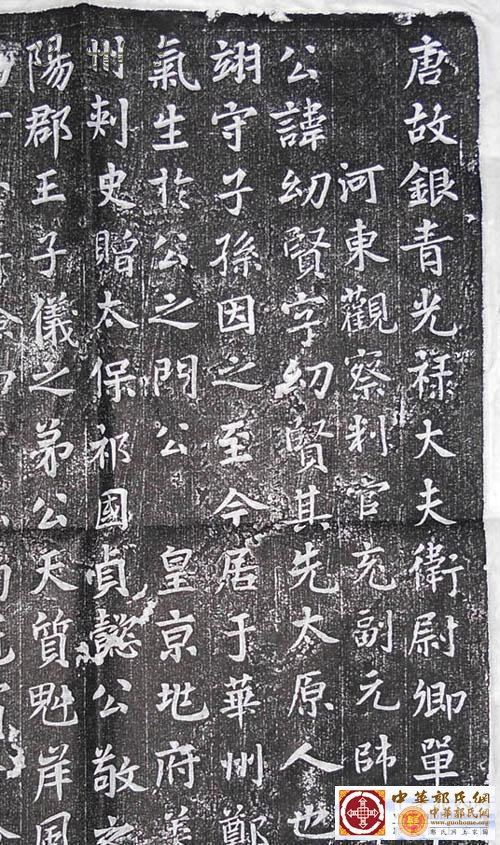 唐故銀青光祿大夫衛尉卿單
河東觀察判官充副元帥
公諱幼賢字幼賢其先太原人也
翊守子孫因之至今居于華州鄭
氣生於公之門公皇京地府美
州刺史贈太保祁國貞懿公敬之
陽郡王子儀之弟公天質魁岸風
中華郭氏網
中華郭氏網
www.guohome.org
郭氏網上家園